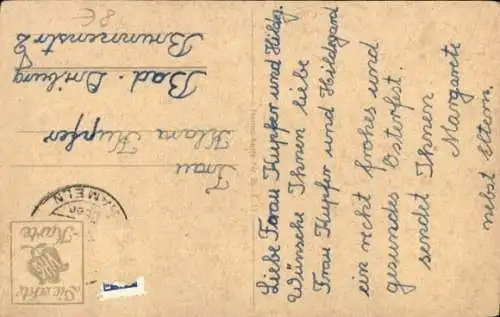 Liebe Frau Kupfer und Hildeg.
Wünsche Ihnen liebe
Frau Kupfer und Hildegard
ein recht frohes und
gesundes Osterfest.
sendet Ihnen
Margarete
nebst Eltern.
Frau
Klara Kupfer
Bad-Driburg
Brunnenstr 2
8€
HAMELN
Die echte
VHG
-Karte